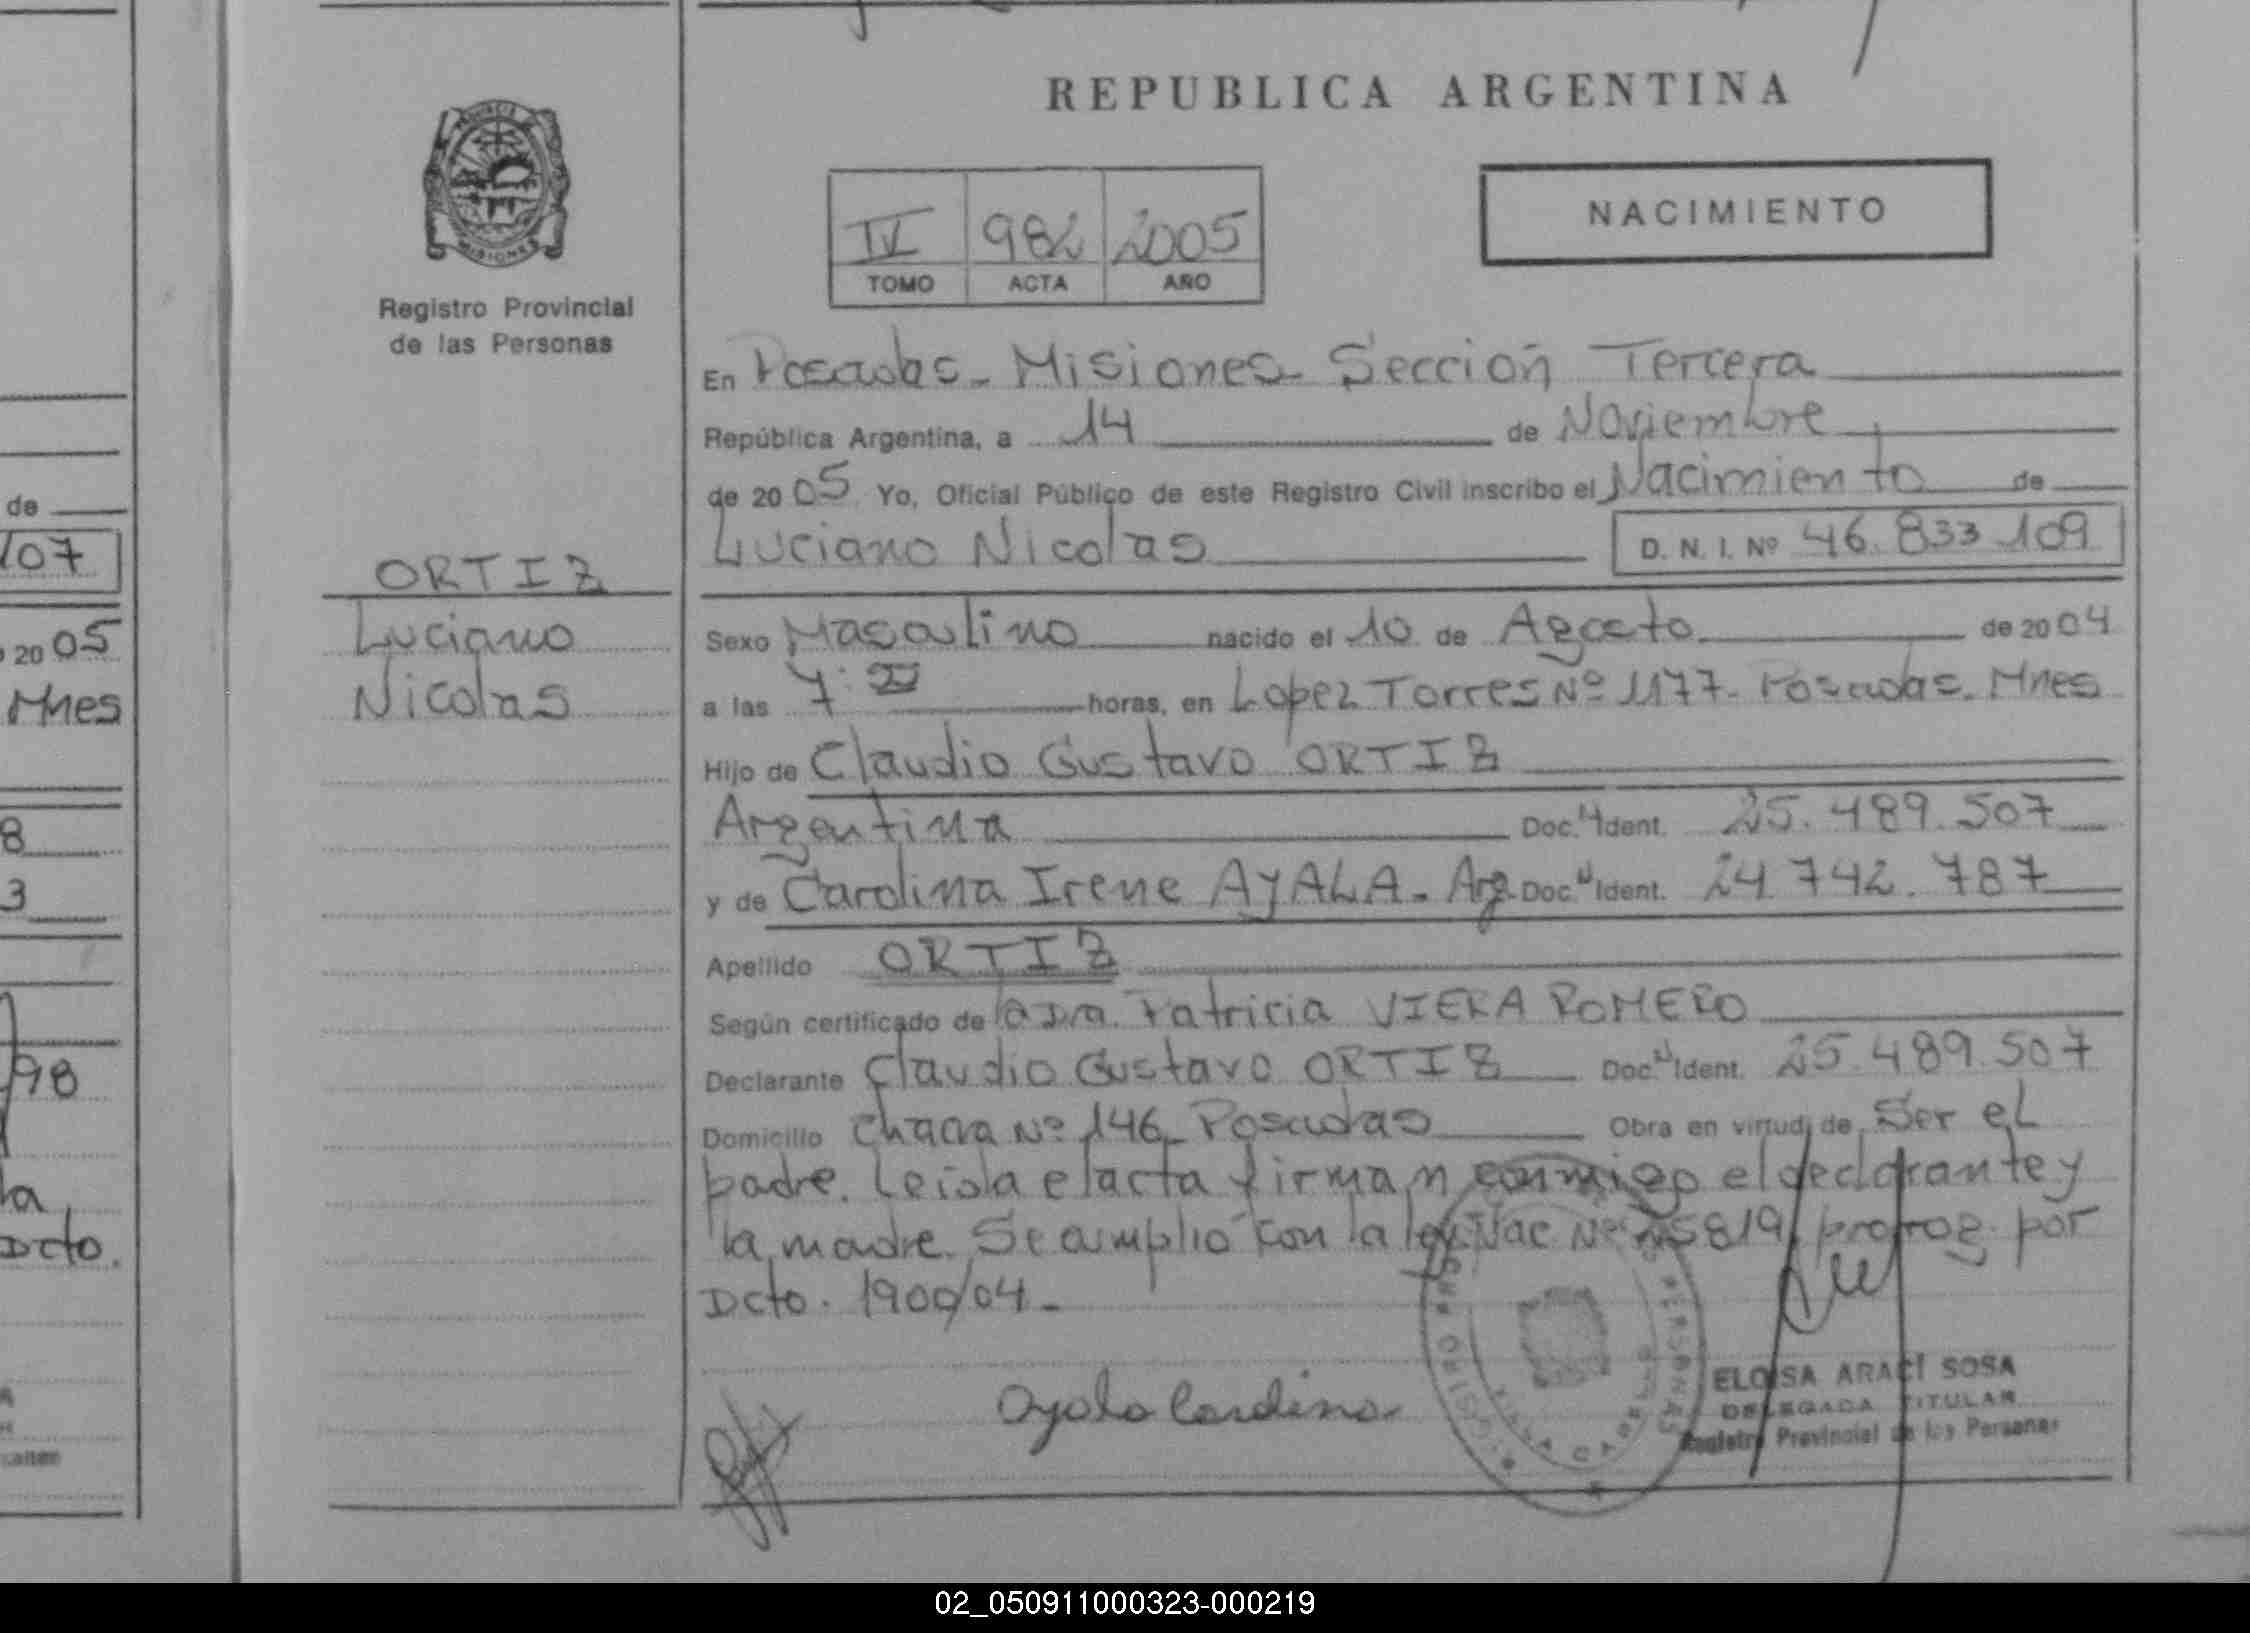 REPUBLICA ARGENTINA
PROVINCIA
MISIONES
Registro Provincial
de las Personas
IV 982 2005
TOMO ACTA AÑO
NACIMIENTO
En Posadas - Misiones - Sección Tercera
República Argentina, a 14 de Noviembre
de 2005 Yo, Oficial Público de este Registro Civil inscribo el Nacimiento de
Luciano Nicolas D. N. I. Nº 46.833.109
ORTIZ
Luciano
Nicolas
Sexo Masculino nacido el 10 de Agosto de 2004
a las 7: horas, en Lopez Torres Nº 1177 - Posadas. Mnes
Hijo de Claudio Gustavo ORTIZ
Argentina Doc. Ident. 25.489.507
y de Carolina Irene AYALA - Arg. Doc. Ident. 24.742.787
Apellido ORTIZ
Según certificado de la Dra. Patricia VIERA ROMERO
Declarante Claudio Gustavo ORTIZ Doc. Ident. 25.489.507
Domicilio Chacra Nº 146 - Posadas Obra en virtud de Ser el
padre. Leida el acta firman conmigo el declarante y
la madre. Se amplio con la ley Nac Nº 25819 prorrog. por
Dcto. 1900/04 -
Ayala Carolina
ELOISA ARACÍ SOSA
DELEGADA TITULAR
Registro Provincial de las Personas
de
107
2005
Mnes
8
3
98
la
Dcto.
02_050911000323-000219